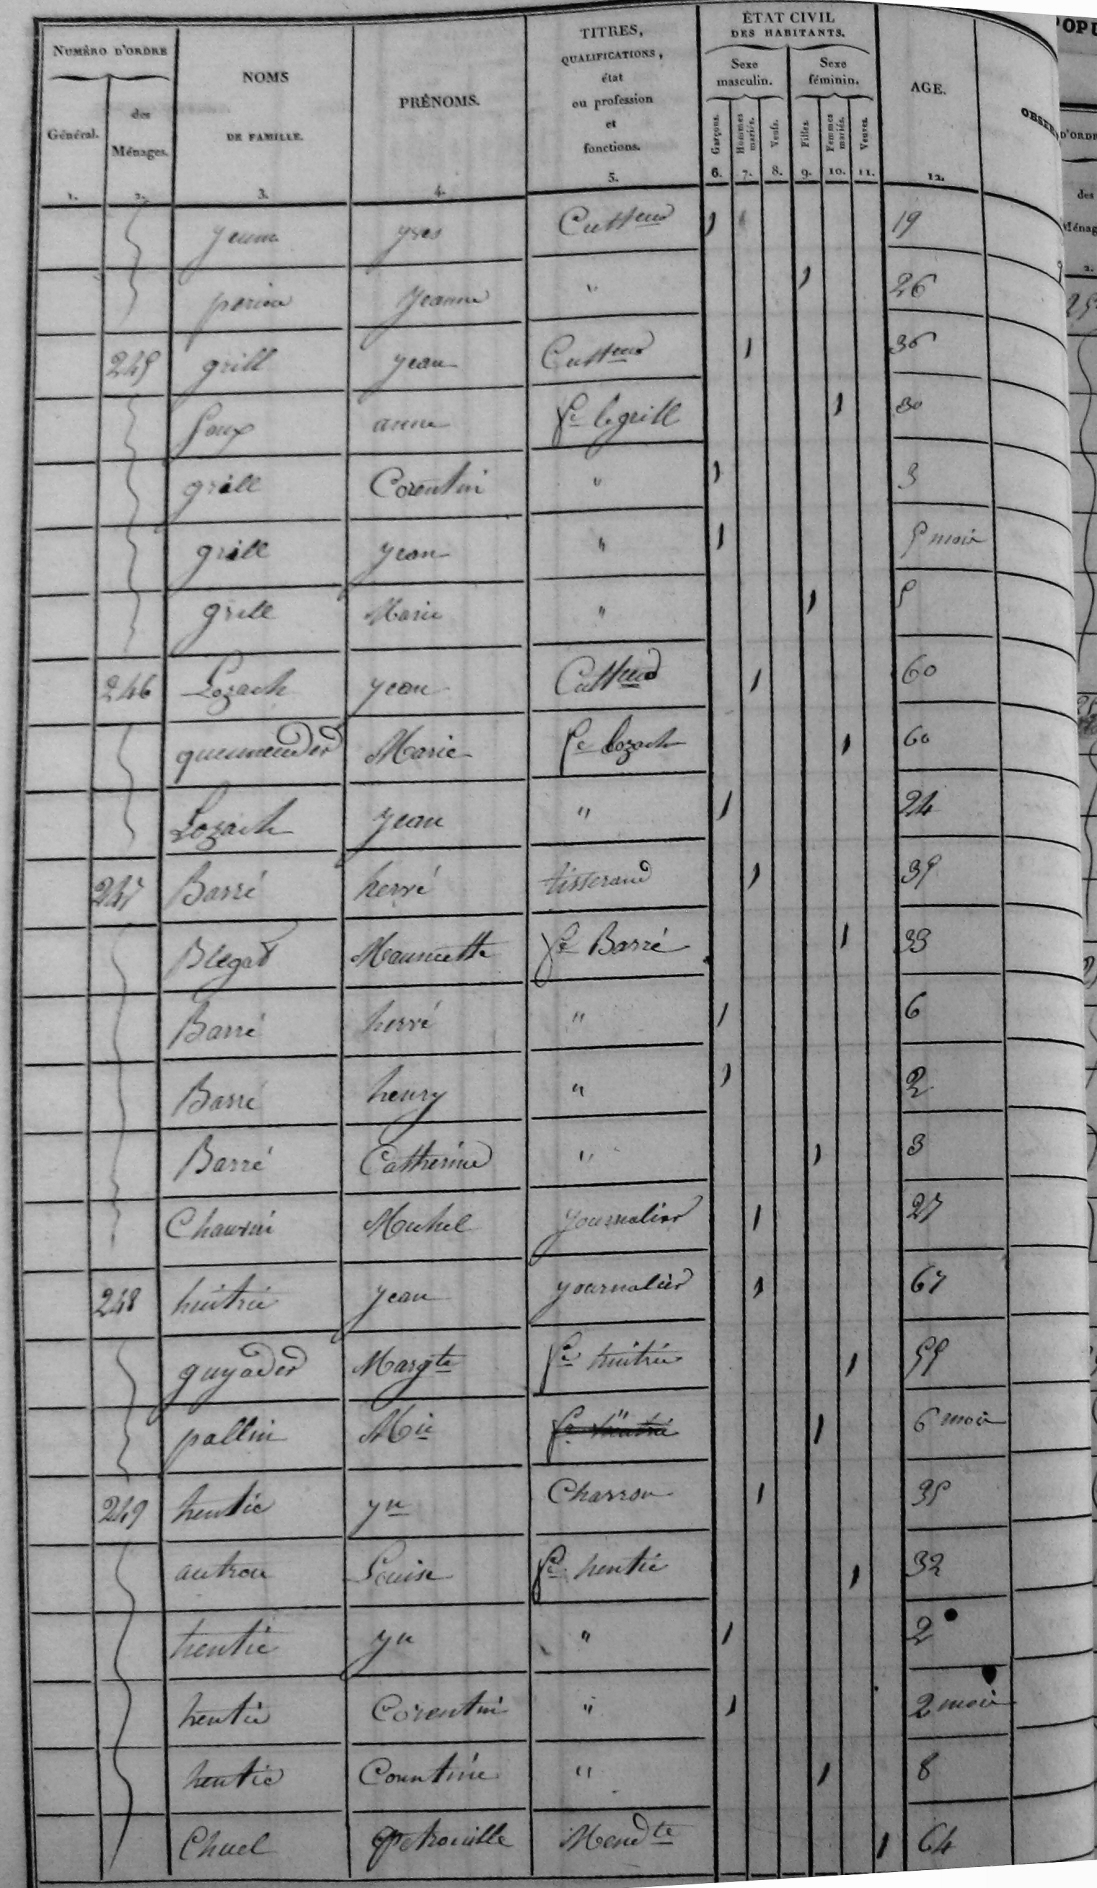 NUMÉRO D'ORDRE
Général.
des Ménages.
NOMS
DE FAMILLE.
PRÉNOMS.
TITRES,
QUALIFICATIONS,
état
ou profession
et
fonctions.
ÉTAT CIVIL
DES HABITANTS.
Sexe masculin.
Sexe féminin.
Garçons.
Hommes mariés.
Veufs.
Filles.
Femmes mariés.
Veuves.
AGE.
OBSER
1. 2. 3. 4. 5. 6. 7. 8. 9. 10. 11. 12.
yves Cultteur 1 19
perion yeanne " 1 26
245 grill yean Cultteur 1 36
anne fe le grill 1 30
grill Corentin " 1 3
grill yean " 1 5 mois
grill Marie " 1 5
246 Lozach yean Cultteur 1 60
quemeneder Marie fe lozach 1 60
Lozach yean " 1 24
247 Barré hervé tisserand 1 35
Blegad Mauricette fe Barré 1 33
Barré hervé " 1 6
Barré henry " 1 2
Barré Catherine " 1 3
Michel yournalier 1 27
248 huitric yean yournalier 1 67
guyader Margte fe huitric 1 55
pallin Mie fe huitric " 1 6 mois
249 hentic yn Charron 1 35
autrou Louise fe hentic 1 32
hentic yn " 1 2
hentic Corentin " 1 2 mois
hentic Corentine " 1 8
Chuel petronille Mendte 1 64
OPU
D'ORDR
des
Ménag
2.